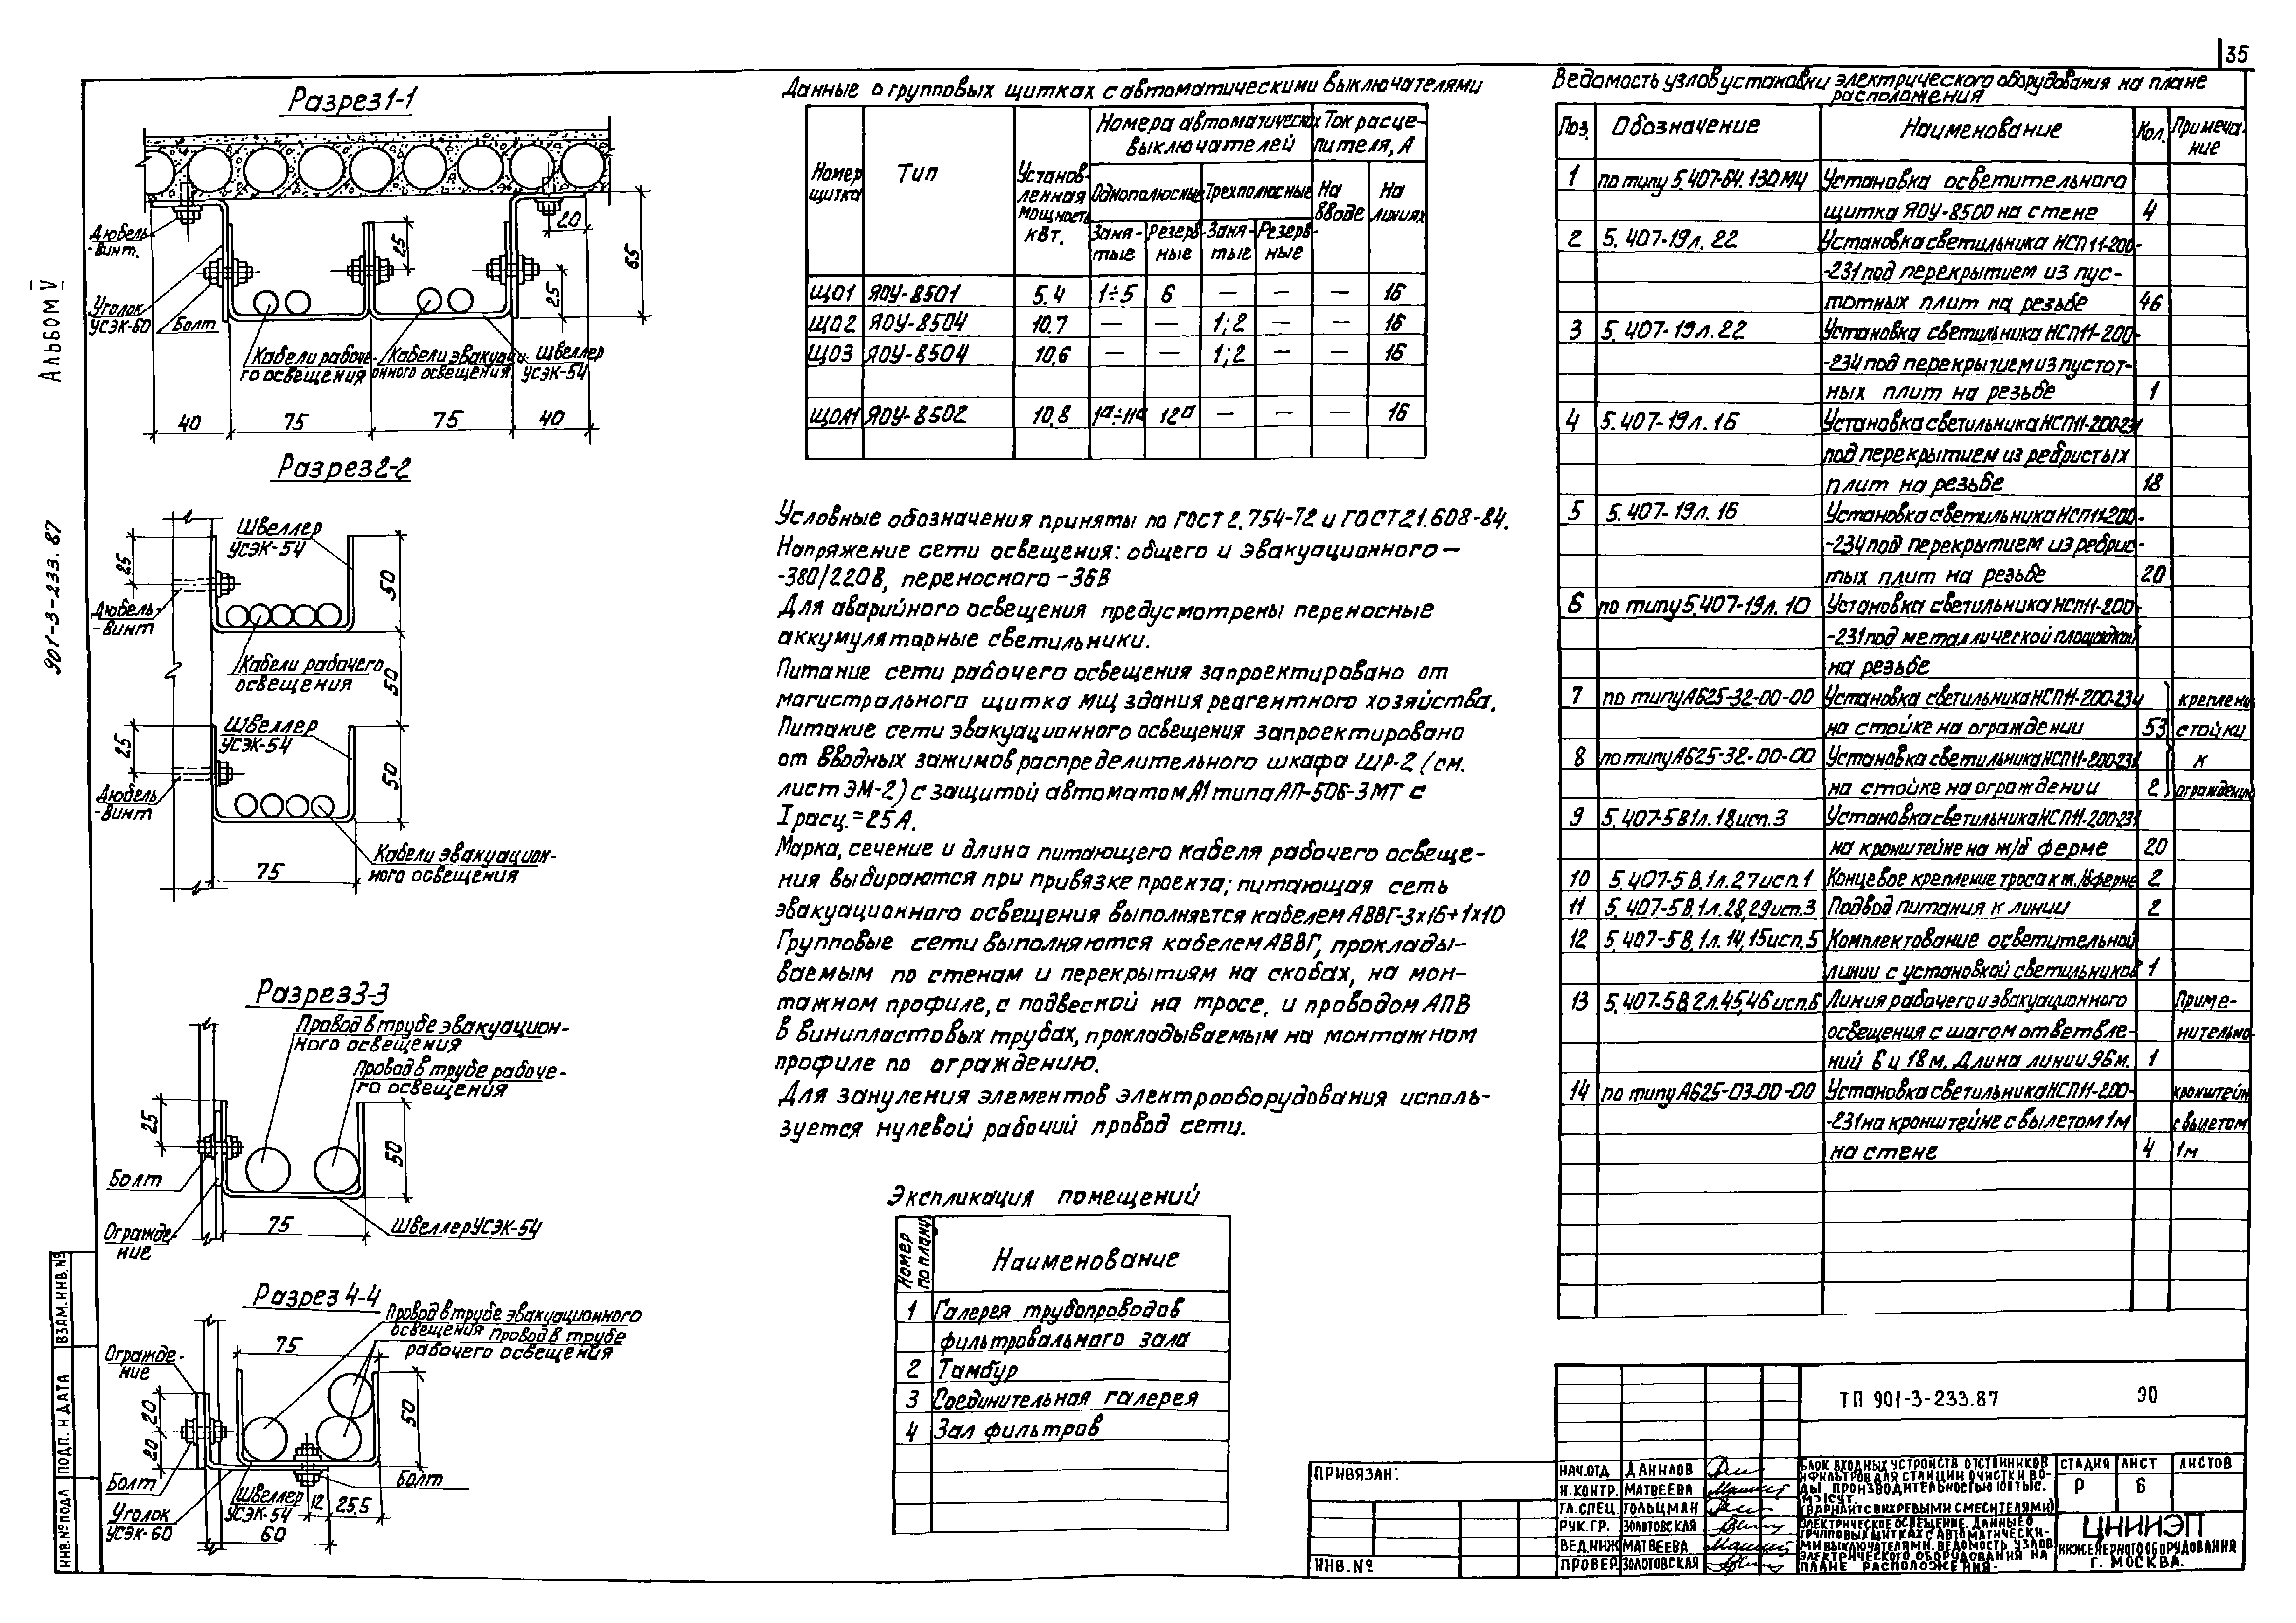 35
АЛЬБОМ V
901-3-233.87
Разрез 1-1
Дюбель-
-винт.
Уголок
УСЭК-60
Болт
Кабели рабоче-
го освещения
Кабели эвакуаци-
онного освещения
Швеллер
УСЭК-54
25
25
20
65
40
75
75
40
Разрез 2-2
Швеллер
УСЭК-54
25
50
Дюбель-
-винт
Кабели рабочего
освещения
50
Швеллер
УСЭК-54
25
50
Дюбель
-винт
75
Кабели эвакуацион-
ного освещения
Разрез 3-3
Провод в трубе эвакуацион-
ного освещения
Провод в трубе рабоче-
го освещения
25
50
Болт
75
Швеллер УСЭК-54
Огражде-
ние
Разрез 4-4
Провод в трубе эвакуационного
освещения
Провод в трубе
рабочего освещения
75
Огражде-
ние
20
20
50
Болт
Болт
Уголок
УСЭК-60
Швеллер
УСЭК-54
12
25,5
60
Данные о групповых щитках с автоматическими выключателями
Номер щитка
Тип
Установ-
ленная
мощность
кВт.
Номера автоматических
выключателей
Однополюсные
Трехполюсные
Заня-
тые
Резерв-
ные
Заня-
тые
Резерв-
ные
Ток расце-
пителя, А
На вводе
На линиях
ЩО1 ЯОУ-8501 5.4 1÷5 6 — — — 16
ЩО2 ЯОУ-8504 10,7 — — 1;2 — — 16
ЩО3 ЯОУ-8504 10,6 — — 1;2 — — 16
ЩОА1 ЯОУ-8502 10,8 1а÷11а 12а — — — 16
Условные обозначения приняты по ГОСТ 2.754-72 и ГОСТ 21.608-84.
Напряжение сети освещения: общего и эвакуационного —
-380/220В, переносного - 36В
Для аварийного освещения предусмотрены переносные
аккумуляторные светильники.
Питание сети рабочего освещения запроектировано от
магистрального щитка МЩ здания реагентного хозяйства.
Питание сети эвакуационного освещения запроектировано
от вводных зажимов распределительного шкафа ШР-2 (см.
лист ЭМ-2) с защитой автоматом А1 типа АП-50Б-3МТ с
Iрасц.=25А.
Марка, сечение и длина питающего кабеля рабочего освеще-
ния выбираются при привязке проекта; питающая сеть
эвакуационного освещения выполняется кабелем АВВГ-3х16+1х10
Групповые сети выполняются кабелем АВВГ, проклады-
ваемым по стенам и перекрытиям на скобах, на мон-
тажном профиле, с подвеской на тросе, и проводом АПВ
в винипластовых трубах, прокладываемым на монтажном
профиле по ограждению.
Для зануления элементов электрооборудования исполь-
зуется нулевой рабочий провод сети.
Экспликация помещений
Номер по плану
Наименование
1 Галерея трубопроводов
фильтровального зала
2 Тамбур
3 Соединительная галерея
4 Зал фильтров
Ведомость узлов установки электрического оборудования на плане
расположения
Поз. Обозначение Наименование Кол. Примеча-
ние
1 по типу 5.407-64.130МЧ Установка осветительного
щитка ЯОУ-8500 на стене 4
2 5.407-19 л.22 Установка светильника НСП11-200-
-231 под перекрытием из пус-
тотных плит на резьбе 46
3 5.407-19 л.22 Установка светильника НСП11-200-
-234 под перекрытием из пустот-
ных плит на резьбе 1
4 5.407-19 л.16 Установка светильника НСП11-200-231
под перекрытием из ребристых
плит на резьбе 18
5 5.407-19 л.16 Установка светильника НСП11-200-
-234 под перекрытием из ребрис-
тых плит на резьбе 20
6 по типу 5.407-19 л.10 Установка светильника НСП11-200-
-231 под металлической площадкой
на резьбе
7 по типу А625-32-00-00 Установка светильника НСП11-200-234 крепление
на стойке на ограждении 53 стойки
8 по типу А625-32-00-00 Установка светильника НСП11-200-231 к
на стойке на ограждении 2 ограждению
9 5.407-5 В1 л.18 исп.3 Установка светильника НСП11-200-231
на кронштейне на ж/б ферме 20
10 5.407-5 В.1 л.27 исп.1 Концевое крепление троса к ж./б ферме 2
11 5.407-5 В.1 л.28,29 исп.3 Подвод питания к линии 2
12 5.407-5 В.1 л.14,15 исп.5 Комплектование осветительной
линии с установкой светильников 1
13 5.407-5 В.2 л.45,46 исп.6 Линия рабочего и эвакуационного Приме-
освещения с шагом ответвле- нительно
ний 6 и 18 м. Длина линии 96м. 1
14 по типу А625-03-00-00 Установка светильника НСП11-200- кронштейн
-231 на кронштейне с вылетом 1м с вылетом
на стене 4 1м
ВЗАМ.ИНВ.№
ПОДП. И ДАТА
ИНВ.№ПОДЛ
ПРИВЯЗАН:
ИНВ.№
НАЧ.ОТД ДАНИЛОВ
Н.КОНТР. МАТВЕЕВА
ГЛ.СПЕЦ. ГОЛЬЦМАН
РУК.ГР. ЗОЛОТОВСКАЯ
ВЕД.ИНЖ МАТВЕЕВА
ПРОВЕР. ЗОЛОТОВСКАЯ
ТП 901-3-233.87 ЭО
БЛОК ВХОДНЫХ УСТРОЙСТВ ОТСТОЙНИКОВ
И ФИЛЬТРОВ ДЛЯ СТАНЦИИ ОЧИСТКИ ВО-
ДЫ ПРОИЗВОДИТЕЛЬНОСТЬЮ 100 ТЫС.
М3/СУТ.
(ВАРИАНТ С ВИХРЕВЫМИ СМЕСИТЕЛЯМИ)
СТАДИЯ ЛИСТ ЛИСТОВ
Р 6
ЭЛЕКТРИЧЕСКОЕ ОСВЕЩЕНИЕ. ДАННЫЕ О
ГРУППОВЫХ ЩИТКАХ С АВТОМАТИЧЕСКИ-
МИ ВЫКЛЮЧАТЕЛЯМИ. ВЕДОМОСТЬ УЗЛОВ
ЭЛЕКТРИЧЕСКОГО ОБОРУДОВАНИЯ НА
ПЛАНЕ РАСПОЛОЖЕНИЯ.
ЦНИИЭП
ИНЖЕНЕРНОГО ОБОРУДОВАНИЯ
Г. МОСКВА.